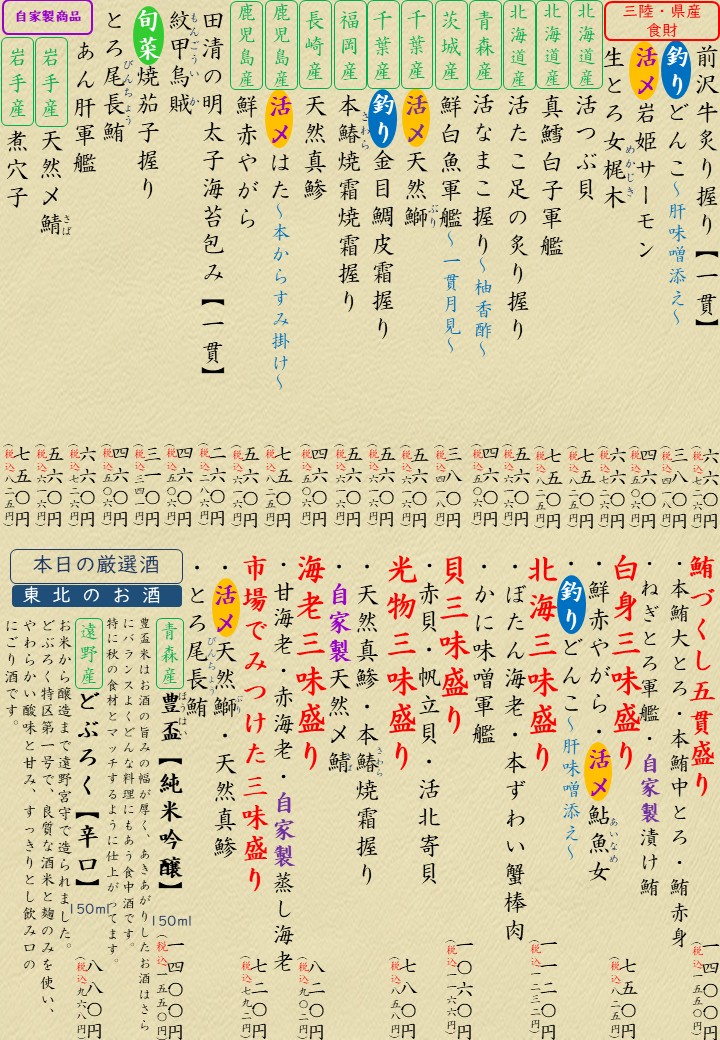 三陸・県産
食財
前沢牛炙り握り【一貫】 六六〇円
(税込七二六円)
釣り どんこ～肝味噌添え～ 三八〇円
(税込四一八円)
活〆 岩姫サーモン 五六〇円
(税込六一六円)
生とろ女梶木 六六〇円
めかじき
(税込七二六円)
北海道産 活つぶ貝 七五〇円
(税込八二五円)
北海道産 真鱈白子軍艦 七五〇円
(税込八二五円)
北海道産 活たこ足の炙り握り 五六〇円
(税込六一六円)
青森産 活なまこ握り～柚香酢～ 四六〇円
(税込五〇六円)
茨城産 鮮白魚軍艦～一貫月見～ 三八〇円
(税込四一八円)
千葉産 活〆 天然鰤 五六〇円
ぶり
(税込六一六円)
千葉産 釣り 金目鯛皮霜握り 五六〇円
(税込六一六円)
福岡産 本鰆焼霜焼霜握り 五六〇円
さわら
(税込六一六円)
長崎産 天然真鯵 四六〇円
(税込五〇六円)
鹿児島産 活〆 はた～本からすみ掛け～ 七五〇円
(税込八二五円)
鹿児島産 鮮赤やがら 五六〇円
(税込六一六円)
田清の明太子海苔包み【一貫】 二六〇円
(税込二八六円)
紋甲烏賊 四六〇円
もんごういか
(税込五〇六円)
旬菜 焼茄子握り 三一〇円
(税込三四一円)
とろ尾長鮪 四六〇円
びんちょう
(税込五〇六円)
あん肝軍艦 六六〇円
(税込七二六円)
自家製商品
岩手産 天然〆鯖 五六〇円
さば
(税込六一六円)
岩手産 煮穴子 七五〇円
(税込八二五円)
鮪づくし五貫盛り 一四〇〇円
(税込一五四〇円)
・本鮪大とろ・本鮪中とろ・本鮪赤身
・ねぎとろ軍艦・自家製漬け鮪
白身三味盛り 七五〇円
(税込八二五円)
・鮮赤やがら・活〆鮎魚女
あいなめ
・釣りどんこ～肝味噌添え～
北海三味盛り 一一二〇円
(税込一二三二円)
・ぼたん海老・本ずわい蟹棒肉
・かに味噌軍艦
貝三味盛り 一〇六〇円
(税込一一六六円)
・赤貝・帆立貝・活北寄貝
光物三味盛り 七八〇円
(税込八五八円)
・天然真鯵・本鰆焼霜握り
さわら
・自家製天然〆鯖
海老三味盛り 八二〇円
(税込九〇二円)
・甘海老・赤海老・自家製蒸し海老
市場でみつけた三味盛り 七二〇円
(税込七九二円)
・活〆天然鰤・天然真鯵
ぶり
・とろ尾長鮪
びんちょう
本日の厳選酒
東北のお酒
青森産 豊盃【純米吟醸】 150ml 一四〇〇円
ほうはい
(税込一五四〇円)
豊盃米はお酒の旨みの幅が厚く、あきあがりしたお酒はさら
にバランスよくどんな料理にもあう食中酒です。
特に秋の食材とマッチするように仕上がってます。
遠野産 どぶろく【辛口】 150ml 八八〇円
(税込九六八円)
お米から醸造まで遠野宮守で造られました。
どぶろく特区第一号で、良質な酒米と麹のみを使い、
やわらかい酸味と甘み、すっきりとし飲み口の
にごり酒です。